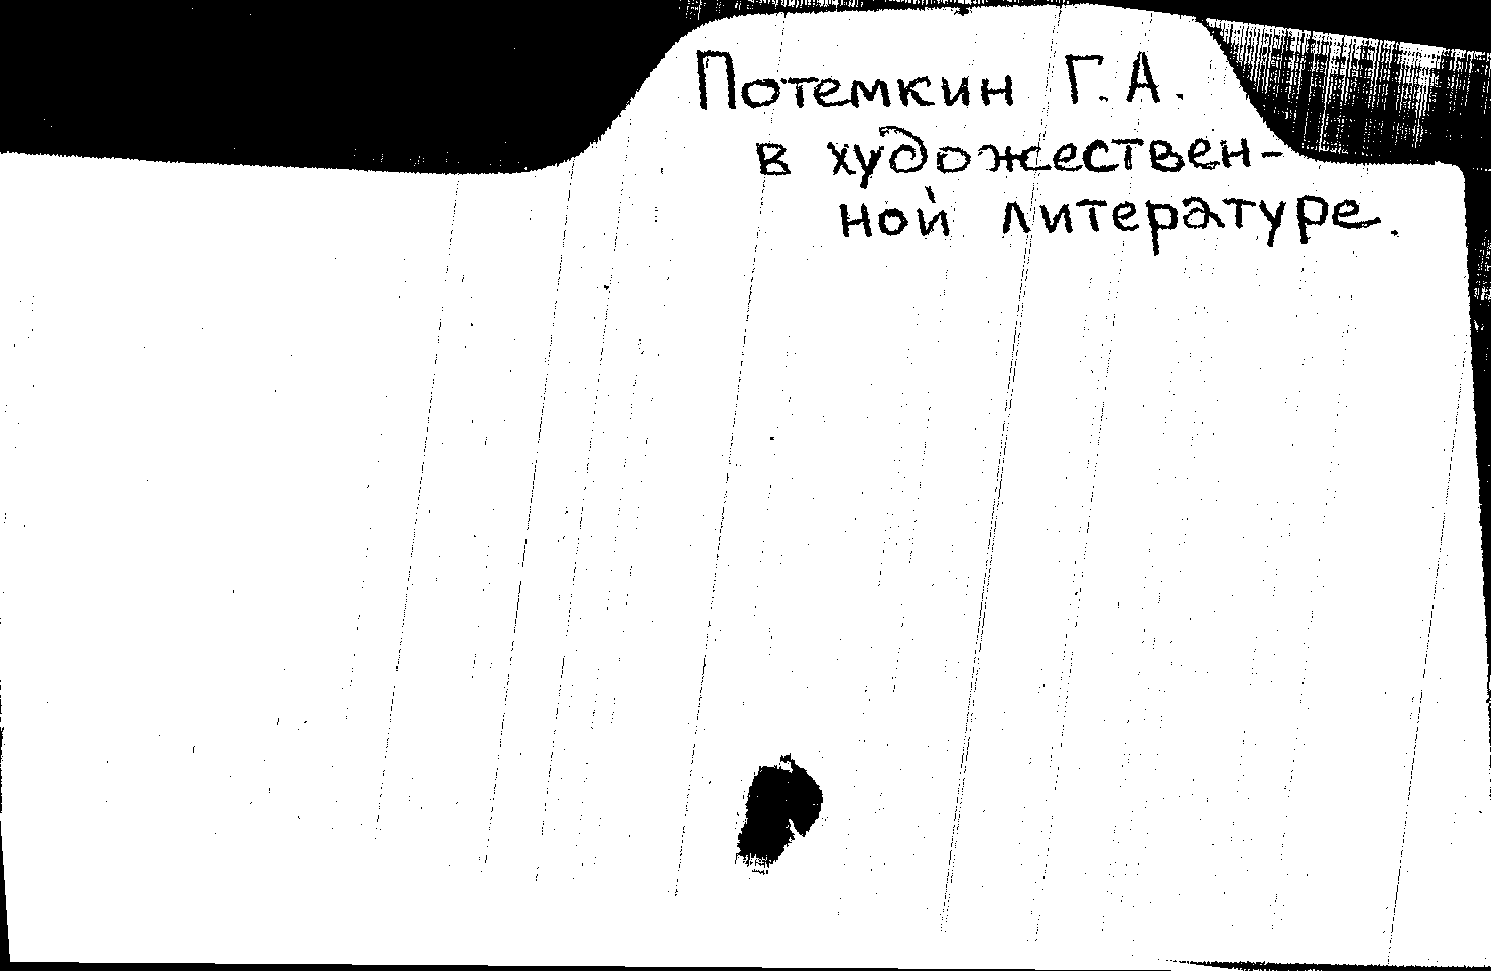 Потемкин Г.А.
в художествен-
ной литературе.